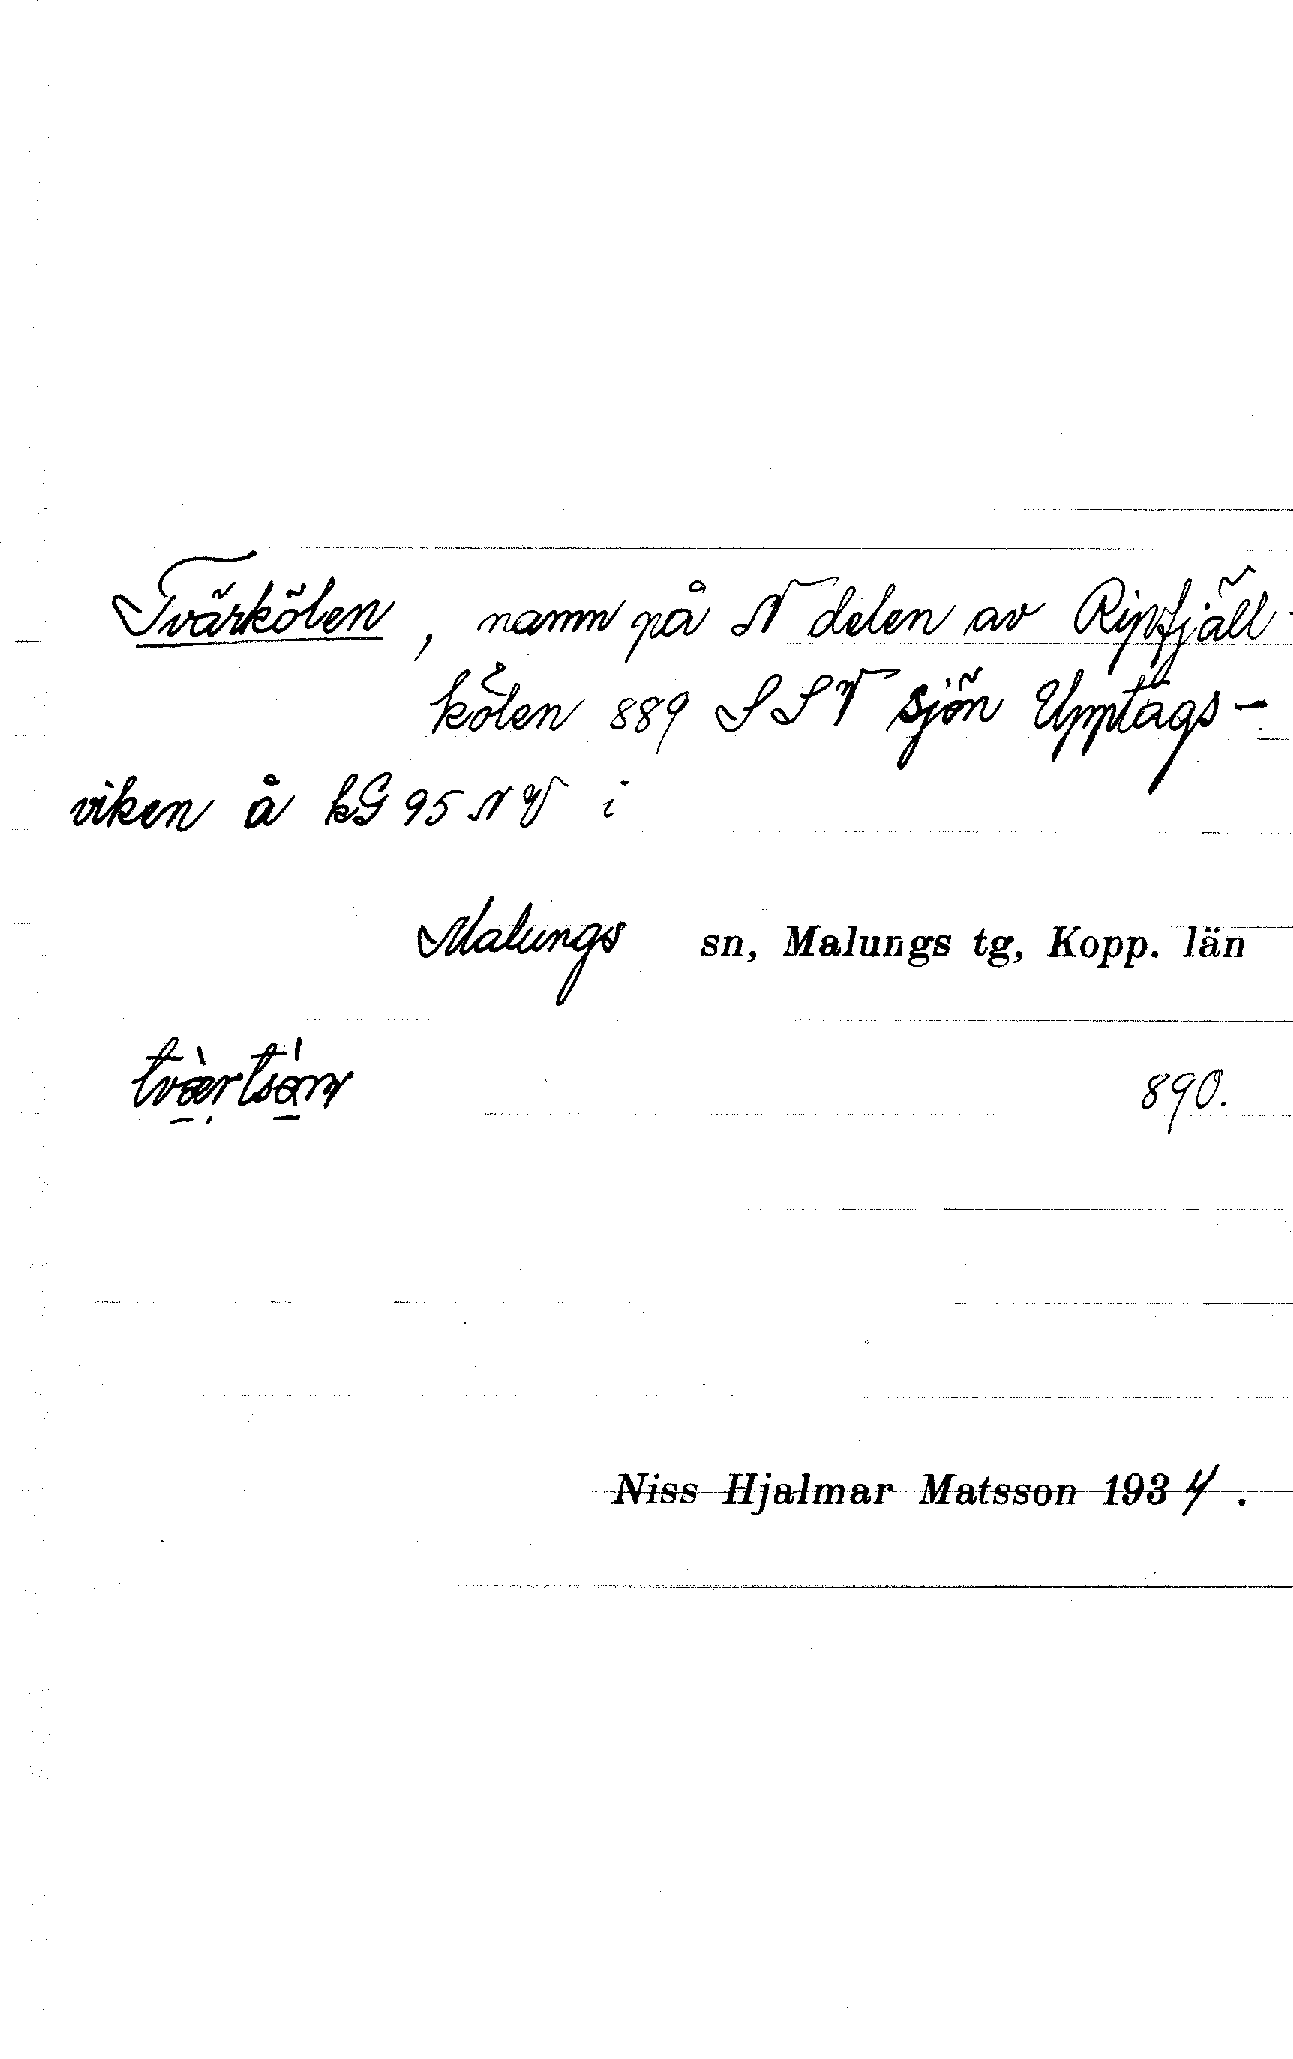 Tvärkölen, namn på N delen av Ripfjäll-
kölen 889 SSV sjön Upptågs-
viken å kG 95 NV i
Malungs sn, Malungs tg, Kopp. län
890.
Niss Hjalmar Matsson 1934.